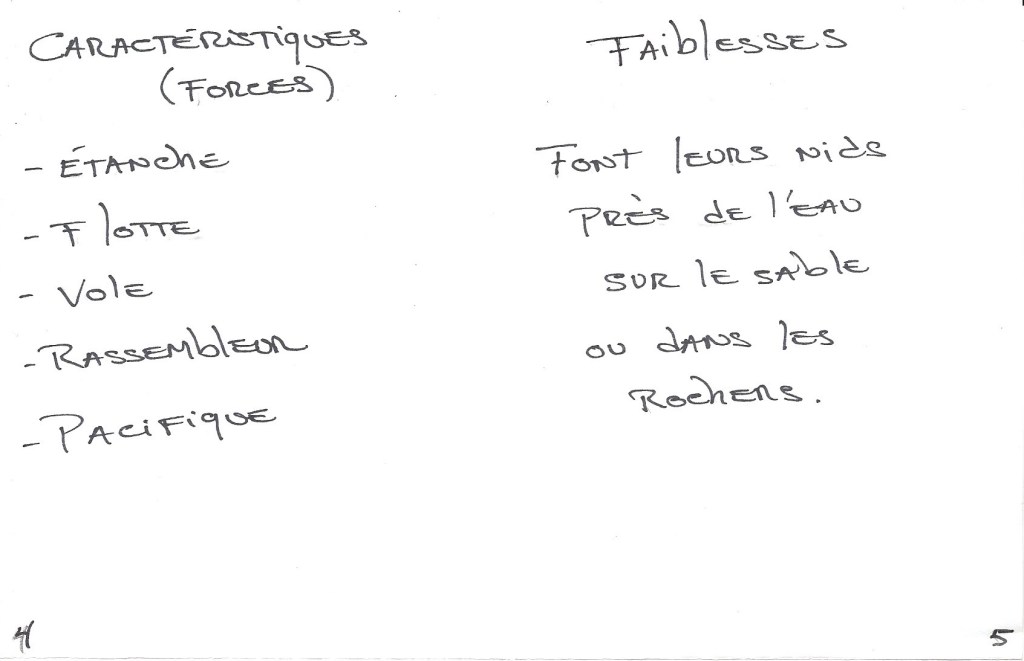 CARACTÉRISTIQUES
(FORCES)
- ÉTANCHE
- FLOTTE
- VOLE
- RASSEMBLEUR
- PACIFIQUE
4
FAIBLESSES
FONT LEURS NIDS
PRÈS DE L'EAU
SUR LE SABLE
OU DANS LES
ROCHERS.
5